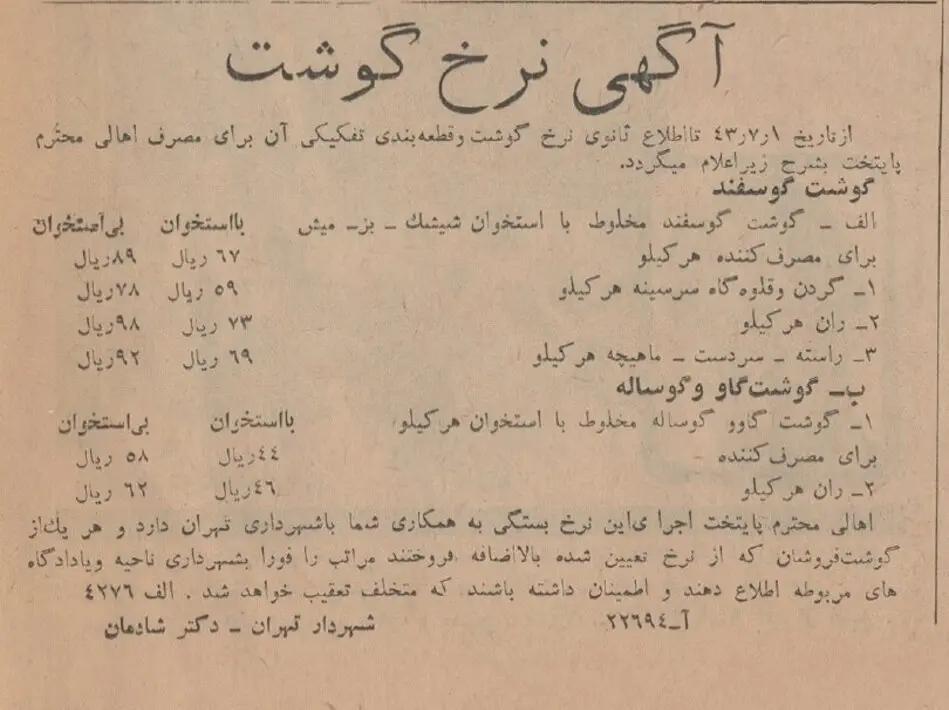 آگهی نرخ گوشت
از تاریخ ۴۳ر۷ر۱ تا اطلاع ثانوی نرخ گوشت و قطعه‌بندی تفکیکی آن برای مصرف اهالی محترم
پایتخت بشرح زیر اعلام میگردد.
گوشت گوسفند
الف ــ گوشت گوسفند مخلوط با استخوان شیشك ــ بز ــ میش بااستخوان بی‌استخوان
برای مصرف‌کننده هر کیلو ۶۷ ریال ۸۹ریال
۱ــ گردن و قلوه‌گاه سرسینه هر کیلو ۵۹ ریال ۷۸ریال
۲ــ ران هر کیلو ۷۳ ریال ۹۸ریال
۳ــ راسته ــ سردست ــ ماهیچه هر کیلو ۶۹ ریال ۹۲ریال
ب ــ گوشت گاو و گوساله
۱ــ گوشت گاوو گوساله مخلوط با استخوان هر کیلو بااستخوان بی‌استخوان
برای مصرف‌کننده ۴۴ریال ۵۸ ریال
۲ــ ران هر کیلو ۴۶ریال ۶۲ ریال
اهالی محترم پایتخت اجرا ی‌این نرخ بستگی به همکاری شما باشهرداری تهران دارد و هر یك‌از
گوشت‌فروشان که از نرخ تعیین شده بالااضافه فروختند مراتب را فورا بشهرداری ناحیه ویادادگاه
های مربوطه اطلاع دهند و اطمینان داشته باشند که متخلف تعقیب خواهد شد . الف ۴۲۷۶
آــ۲۲۶۹۴ شهردار تهران ــ دکتر شادمان